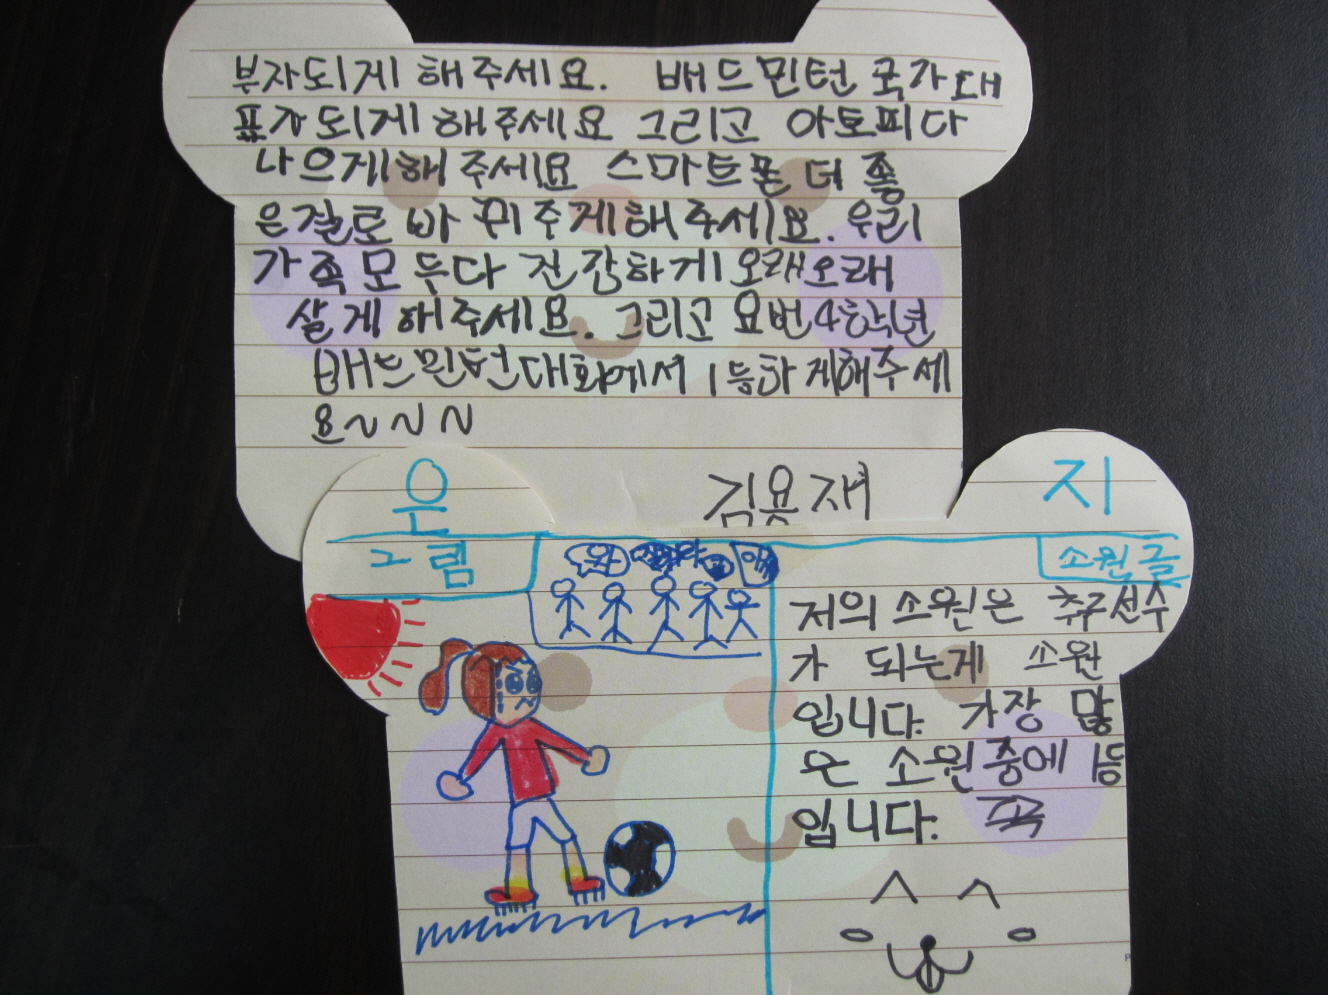 부자되게 해주세요. 배드민턴 국가대
표자되게 해주세요 그리고 아토피다
나으게해주세요 스마트폰 더 좋
은걸로 바뀌주게해주세요. 우리
가족모두다 건강하게 오래오래
살게 해주세요. 그리고 요번4학년
배드민턴대회에서 1등하게해주세
요~~~
김용재
은 지
그림
와
소원글
저의 소원은 축구선수
가 되는게 소원
입니다. 가장 많
은 소원중에 1등
입니다.